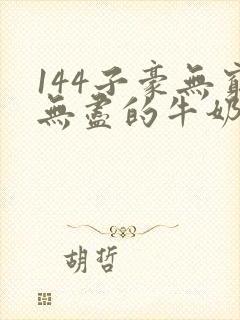 144子豪無窮
無盡的牛奶
胡哲